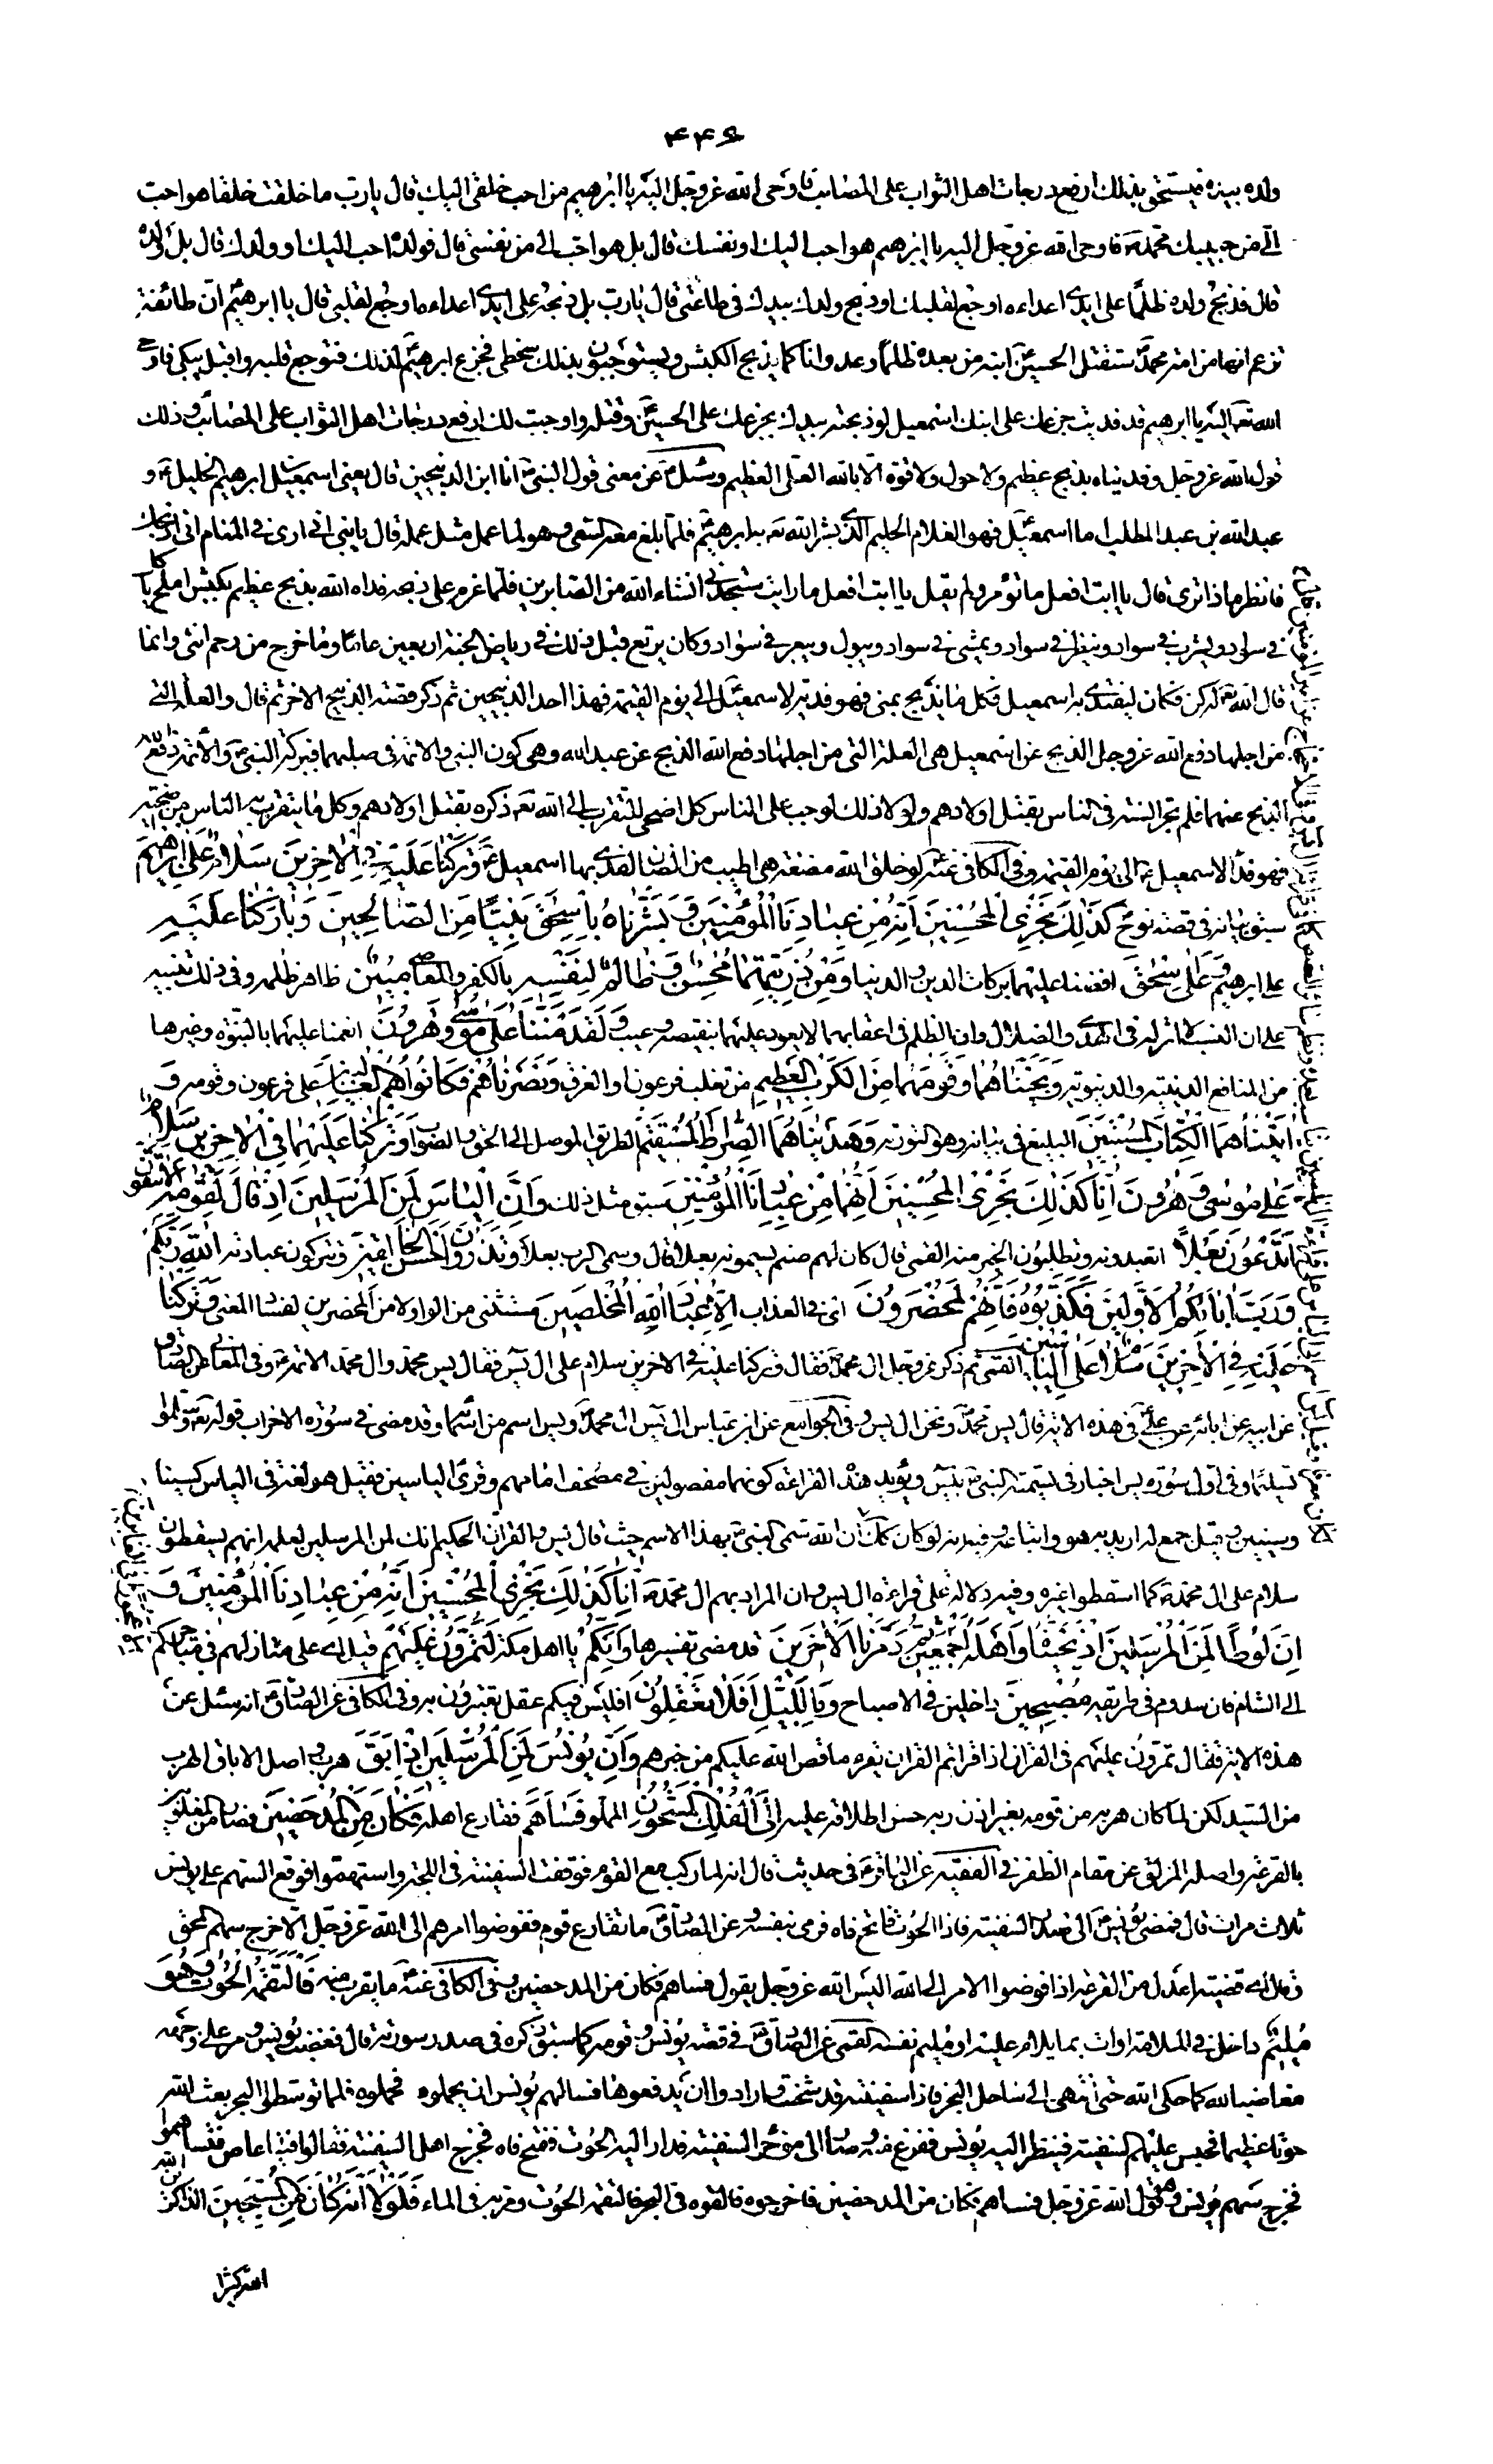 ۴۴۶
ولده بيده فيستحق بذلك ارفع درجات اهل الثواب على المصائب فاوحى الله عز وجل اليه يا ابرهيم من احب خلقى اليك قال يا رب ما خلقت خلقا هو احب
الى من حبيبك محمد ص فاوحى الله عز وجل اليه يا ابرهيم هو احب اليك او نفسك قال بل هو احب الى من نفسى قال فولده احب اليك او ولدك قال بل ولده
قال فذبح ولده ظلما على ايدى اعدائه اوجع لقلبك او ذبح ولدك بيدك فى طاعتى قال يا رب بل ذبحه على ايدى اعدائه اوجع لقلبى قال يا ابرهيم ان طائفة
تزعم انها من امة محمد ستقتل الحسين ابنه من بعده ظلما وعدوانا كما يذبح الكبش ويستوجبون بذلك سخطى فجزع ابرهيم لذلك فتوجع قلبه واقبل يبكى فاوحى
الله تعه اليه يا ابرهيم قد فديت جزعك على ابنك اسمعيل لو ذبحته بيدك بجزعك على الحسين وقتله واوجبت لك ارفع درجات اهل الثواب على المصائب وذلك
قول الله عز وجل وفديناه بذبح عظيم ولا حول ولا قوة الا بالله العلى العظيم وسئل ع عن معنى قول النبى ص انا ابن الذبيحين قال يعنى اسمعيل بن ابرهيم الخليل ع و
عبد الله بن عبد المطلب اما اسمعيل فهو الغلام الحليم الذى بشر الله تعه به ابرهيم فلما بلغ معه السعى وهو لما عمل مثل عمله قال يا بنى انى ارى فى المنام انى اذبحك
فانظر ماذا ترى قال يا ابت افعل ما تؤمر ولم يقل يا ابت افعل ما رايت ستجدنى انشاء الله من الصابرين فلما عزم على ذبحه فداه الله بذبح عظيم بكبش املح ياكل
فى سواد ويشرب فى سواد وينظر فى سواد ويمشى فى سواد ويبول ويبعر فى سواد وكان يرتع قبل ذلك فى رياض الجنة اربعين عاما وما خرج من رحم انثى وانما
قال الله تعه له كن فكان ليفتدى به اسمعيل فكل ما يذبح بمنى فهو فدية لاسمعيل الى يوم القيمة فهذا احد الذبيحين ثم ذكر قصة الذبيح الاخر ثم قال والعلة التى
من اجلها دفع الله عز وجل الذبح عن اسمعيل هى العلة التى من اجلها دفع الله الذبح عن عبد الله وهى كون النبى والائمة فى صلبهما فببركة النبى ص والائمة دفع الله
الذبح عنهما فلم تجر السنة فى الناس بقتل اولادهم ولولا ذلك لوجب على الناس كل اضحى التقرب الى الله تعه ذكره بقتل اولادهم وكل ما يتقرب به الناس من اضحية
فهو فداء لاسمعيل ع الى يوم القيمة وفى الكافى عنه ع لو خلق الله مضغة هى اطيب من الضان لفدى بها اسمعيل ع وَتَرَكْنَا عَلَيْهِ فِى الْاٰخِرِينَ سَلَامٌ عَلَى اِبْرٰهِيمَ
سبق بيانه فى قصة نوح كَذٰلِكَ نَجْزِى الْمُحْسِنِينَ اِنَّهُ مِنْ عِبَادِنَا الْمُؤْمِنِينَ وَبَشَّرْنَاهُ بِاِسْحٰقَ نَبِيًّا مِنَ الصَّالِحِينَ وَبَارَكْنَا عَلَيْهِ
على ابرهيم وَعَلٰى اِسْحٰقَ افضنا عليهما بركات الدين والدنيا وَمِنْ ذُرِّيَّتِهِمَا مُحْسِنٌ وَظَالِمٌ لِنَفْسِهِ بالكفر والمعاصى مُبِينٌ ظاهر ظلمه وفى ذلك تنبيه
على ان النسب لا اثر له فى الهدى والضلال وان الظلم فى اعقابهما لا يعود عليهما بنقيصة وعيب وَلَقَدْ مَنَنَّا عَلٰى مُوسٰى وَهٰرُونَ انعمنا عليهما بالنبوة وغيرها
من المنافع الدينية والدنيوية وَنَجَّيْنَاهُمَا وَقَوْمَهُمَا مِنَ الْكَرْبِ الْعَظِيمِ من تغلب فرعون او الغرق وَنَصَرْنَاهُمْ فَكَانُوا هُمُ الْغَالِبِينَ على فرعون وقومه وَ
اٰتَيْنَاهُمَا الْكِتَابَ الْمُسْتَبِينَ البليغ فى بيانه وهو التورية وَهَدَيْنَاهُمَا الصِّرَاطَ الْمُسْتَقِيمَ الطريق الموصل الى الحق والصواب وَتَرَكْنَا عَلَيْهِمَا فِى الْاٰخِرِينَ سَلَامٌ
عَلٰى مُوسٰى وَهٰرُونَ اِنَّا كَذٰلِكَ نَجْزِى الْمُحْسِنِينَ اِنَّهُمَا مِنْ عِبَادِنَا الْمُؤْمِنِينَ سبق مثل ذلك وَاِنَّ اِلْيَاسَ لَمِنَ الْمُرْسَلِينَ اِذْ قَالَ لِقَوْمِهِ اَلَا تَتَّقُونَ
اَتَدْعُونَ بَعْلًا اتعبدونه وتطلبون الخير منه القمى قال كان لهم صنم يسمونه بعلا قال وسمى الرب بعلا وَتَذَرُونَ اَحْسَنَ الْخَالِقِينَ وتتركون عبادته اَللّٰهَ رَبَّكُمْ
وَرَبَّ اٰبَائِكُمُ الْاَوَّلِينَ فَكَذَّبُوهُ فَاِنَّهُمْ لَمُحْضَرُونَ اى فى العذاب اِلَّا عِبَادَ اللّٰهِ الْمُخْلَصِينَ مستثنى من الواو لا من المحضرين لفساد المعنى وَتَرَكْنَا
عَلَيْهِ فِى الْاٰخِرِينَ سَلَامٌ عَلٰى اِلْيَاسِينَ القمى ثم ذكر عز وجل ال محمد ص فقال وتركنا عليه فى الاخرين سلام على ال يس فقال يس محمد وال محمد الائمة ع وفى المعانى عن الصادق
عن ابيه عن ابائه عن على ع فى هذه الاية قال يس محمد ونحن ال يس وفى الجوامع عن ابن عباس ال يس ال محمد ويس اسم من اسمائه وقد مضى فى سورة الاحزاب قوله تعه وسلموا
تسليما وفى اول سورة يس اخبار فى تسمية النبى ص بيس ويؤيد هذه القراءة كونهما مفصولين فى مصحف امامهم وقرئ الياسين فقيل هو لغة فى الياس كسينا
وسينين وقيل جمع له اريد به هو واتباعه وفيه انه لو كان كك ان الله سمى النبى ص بهذا الاسم حيث قال يس والقران الحكيم انك لمن المرسلين لعلمه انهم يسقطون
سلام على ال محمد ص كما اسقطوا غيره وفيه دلالة على قراءة ال يس وان المراد بهم ال محمد ص اِنَّا كَذٰلِكَ نَجْزِى الْمُحْسِنِينَ اِنَّهُ مِنْ عِبَادِنَا الْمُؤْمِنِينَ وَ
اِنَّ لُوطًا لَمِنَ الْمُرْسَلِينَ اِذْ نَجَّيْنَاهُ وَاَهْلَهُ اَجْمَعِينَ ثُمَّ دَمَّرْنَا الْاٰخَرِينَ قد مضى تفسيرها وَاِنَّكُمْ يا اهل مكة لَتَمُرُّونَ عَلَيْهِمْ قيل اى على منازلهم فى متاجركم
الى الشام فان سدوم فى طريقه مُصْبِحِينَ داخلين فى الاصباح وَبِاللَّيْلِ اَفَلَا تَعْقِلُونَ افليس فيكم عقل تعتبرون به وفى الكافى عن الصادق ع انه سئل عن
هذه الاية فقال تمرون عليهم فى القران اذا قراتم القران تقرء ما قص الله عليكم من خبرهم وَاِنَّ يُونُسَ لَمِنَ الْمُرْسَلِينَ اِذْ اَبَقَ هرب واصل الاباق الهرب
من السيد لكن لما كان هربه من قومه بغير اذن ربه حسن اطلاقه عليه اِلَى الْفُلْكِ الْمَشْحُونِ المملو فَسَاهَمَ فقارع اهله فَكَانَ مِنَ الْمُدْحَضِينَ فصار من المغلوبين
بالقرعة واصله المزلق عن مقام الظفر فى الفقيه عن الباقر ع فى حديث قال انه لما ركب مع القوم فوقفت السفينة فى اللجة واستهموا فوقع السهم على يونس
ثلاث مرات قال فمضى يونس الى صدر السفينة فاذا الحوت فاتح فاه فرمى بنفسه وعن الصادق ع ما تقارع قوم ففوضوا امرهم الى الله عز وجل الا خرج سهم المحق
وقال اى قضية اعدل من القرعة اذا فوضوا الامر الى الله اليس الله عز وجل يقول فساهم فكان من المدحضين وفى الكافى عنه ع ما يقرب منه فَالْتَقَمَهُ الْحُوتُ وَهُوَ
مُلِيمٌ داخل فى الملامة او ات بما يلام عليه او مليم نفسه القمى عن الصادق ع فى قصة يونس وقومه كما سبق ذكره فى صدر سورته قال فغضب يونس ومر على وجهه
مغاضبا لله كما حكى الله حتى انتهى الى ساحل البحر فاذا سفينة قد شحنت وارادوا ان يدفعوها فسالهم يونس ان يحملوه فحملوه فلما توسطوا البحر بعث الله
حوتا عظيما فحبس عليهم السفينة فنظر اليه يونس ففزع منه وصار الى مؤخر السفينة فدار اليه الحوت ففتح فاه فخرج اهل السفينة فقالوا فينا عاص فتساهموا
فخرج سهم يونس وهو قول الله عز وجل فساهم فكان من المدحضين فاخرجوه فالقوه فى البحر فالتقمه الحوت ومر به فى الماء فَلَوْلَا اَنَّهُ كَانَ مِنَ الْمُسَبِّحِينَ الذاكرين الله
الله كثيرا